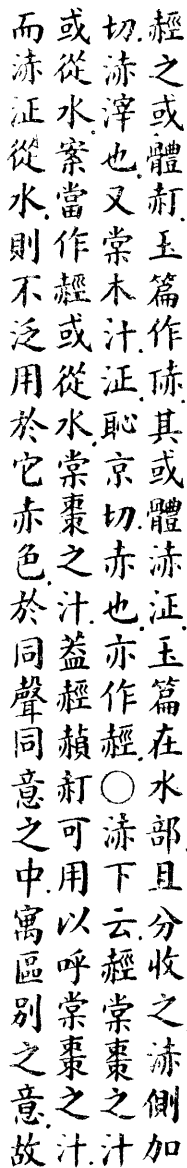 䞓之或體𧹛玉篇作其或體浾泟玉篇在水部且分收之浾側加
切浾滓也又棠木汁泟恥京切赤也亦作䞓〇浾下云䞓棠棗之汁
或從水案當作䞓或從水棠棗之汁葢䞓赬𧹛可用以呼棠棗之汁
而浾泟從水則不泛用於它赤色於同聲同意之中寓區別之意故